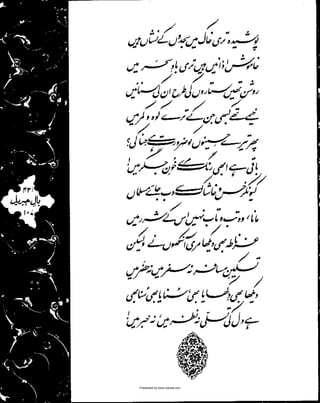 پوشیدہ تری خاک میں سجدوں کے نشاں ہیں
خاموش اذانیں ہیں تری بادِ سحر میں
روشن تھیں ستاروں کی طرح ان کی سنانیں
خیمے تھے کبھی جن کے ترے کوہ و کمر میں
پھر تیرے حسینوں کو ضرورت ہے حنا کی؟
باقی ہے ابھی رنگ مرے خونِ جگر میں!
کیونکر خس و خاشاک سے دب جائے مسلماں
مانا، وہ تب و تاب نہیں اس کے شرر میں
غرناطہ بھی دیکھا مری آنکھوں نے ولیکن
تسکینِ مسافر نہ سفر میں نہ حضر میں
دیکھا بھی دکھایا بھی، سنایا بھی سنا بھی
ہے دل کی تسلی نہ نظر میں، نہ خبر میں!
۴۳۱
بالِ جبریل
۱۰۷
Presented by www.iqbalsi.com